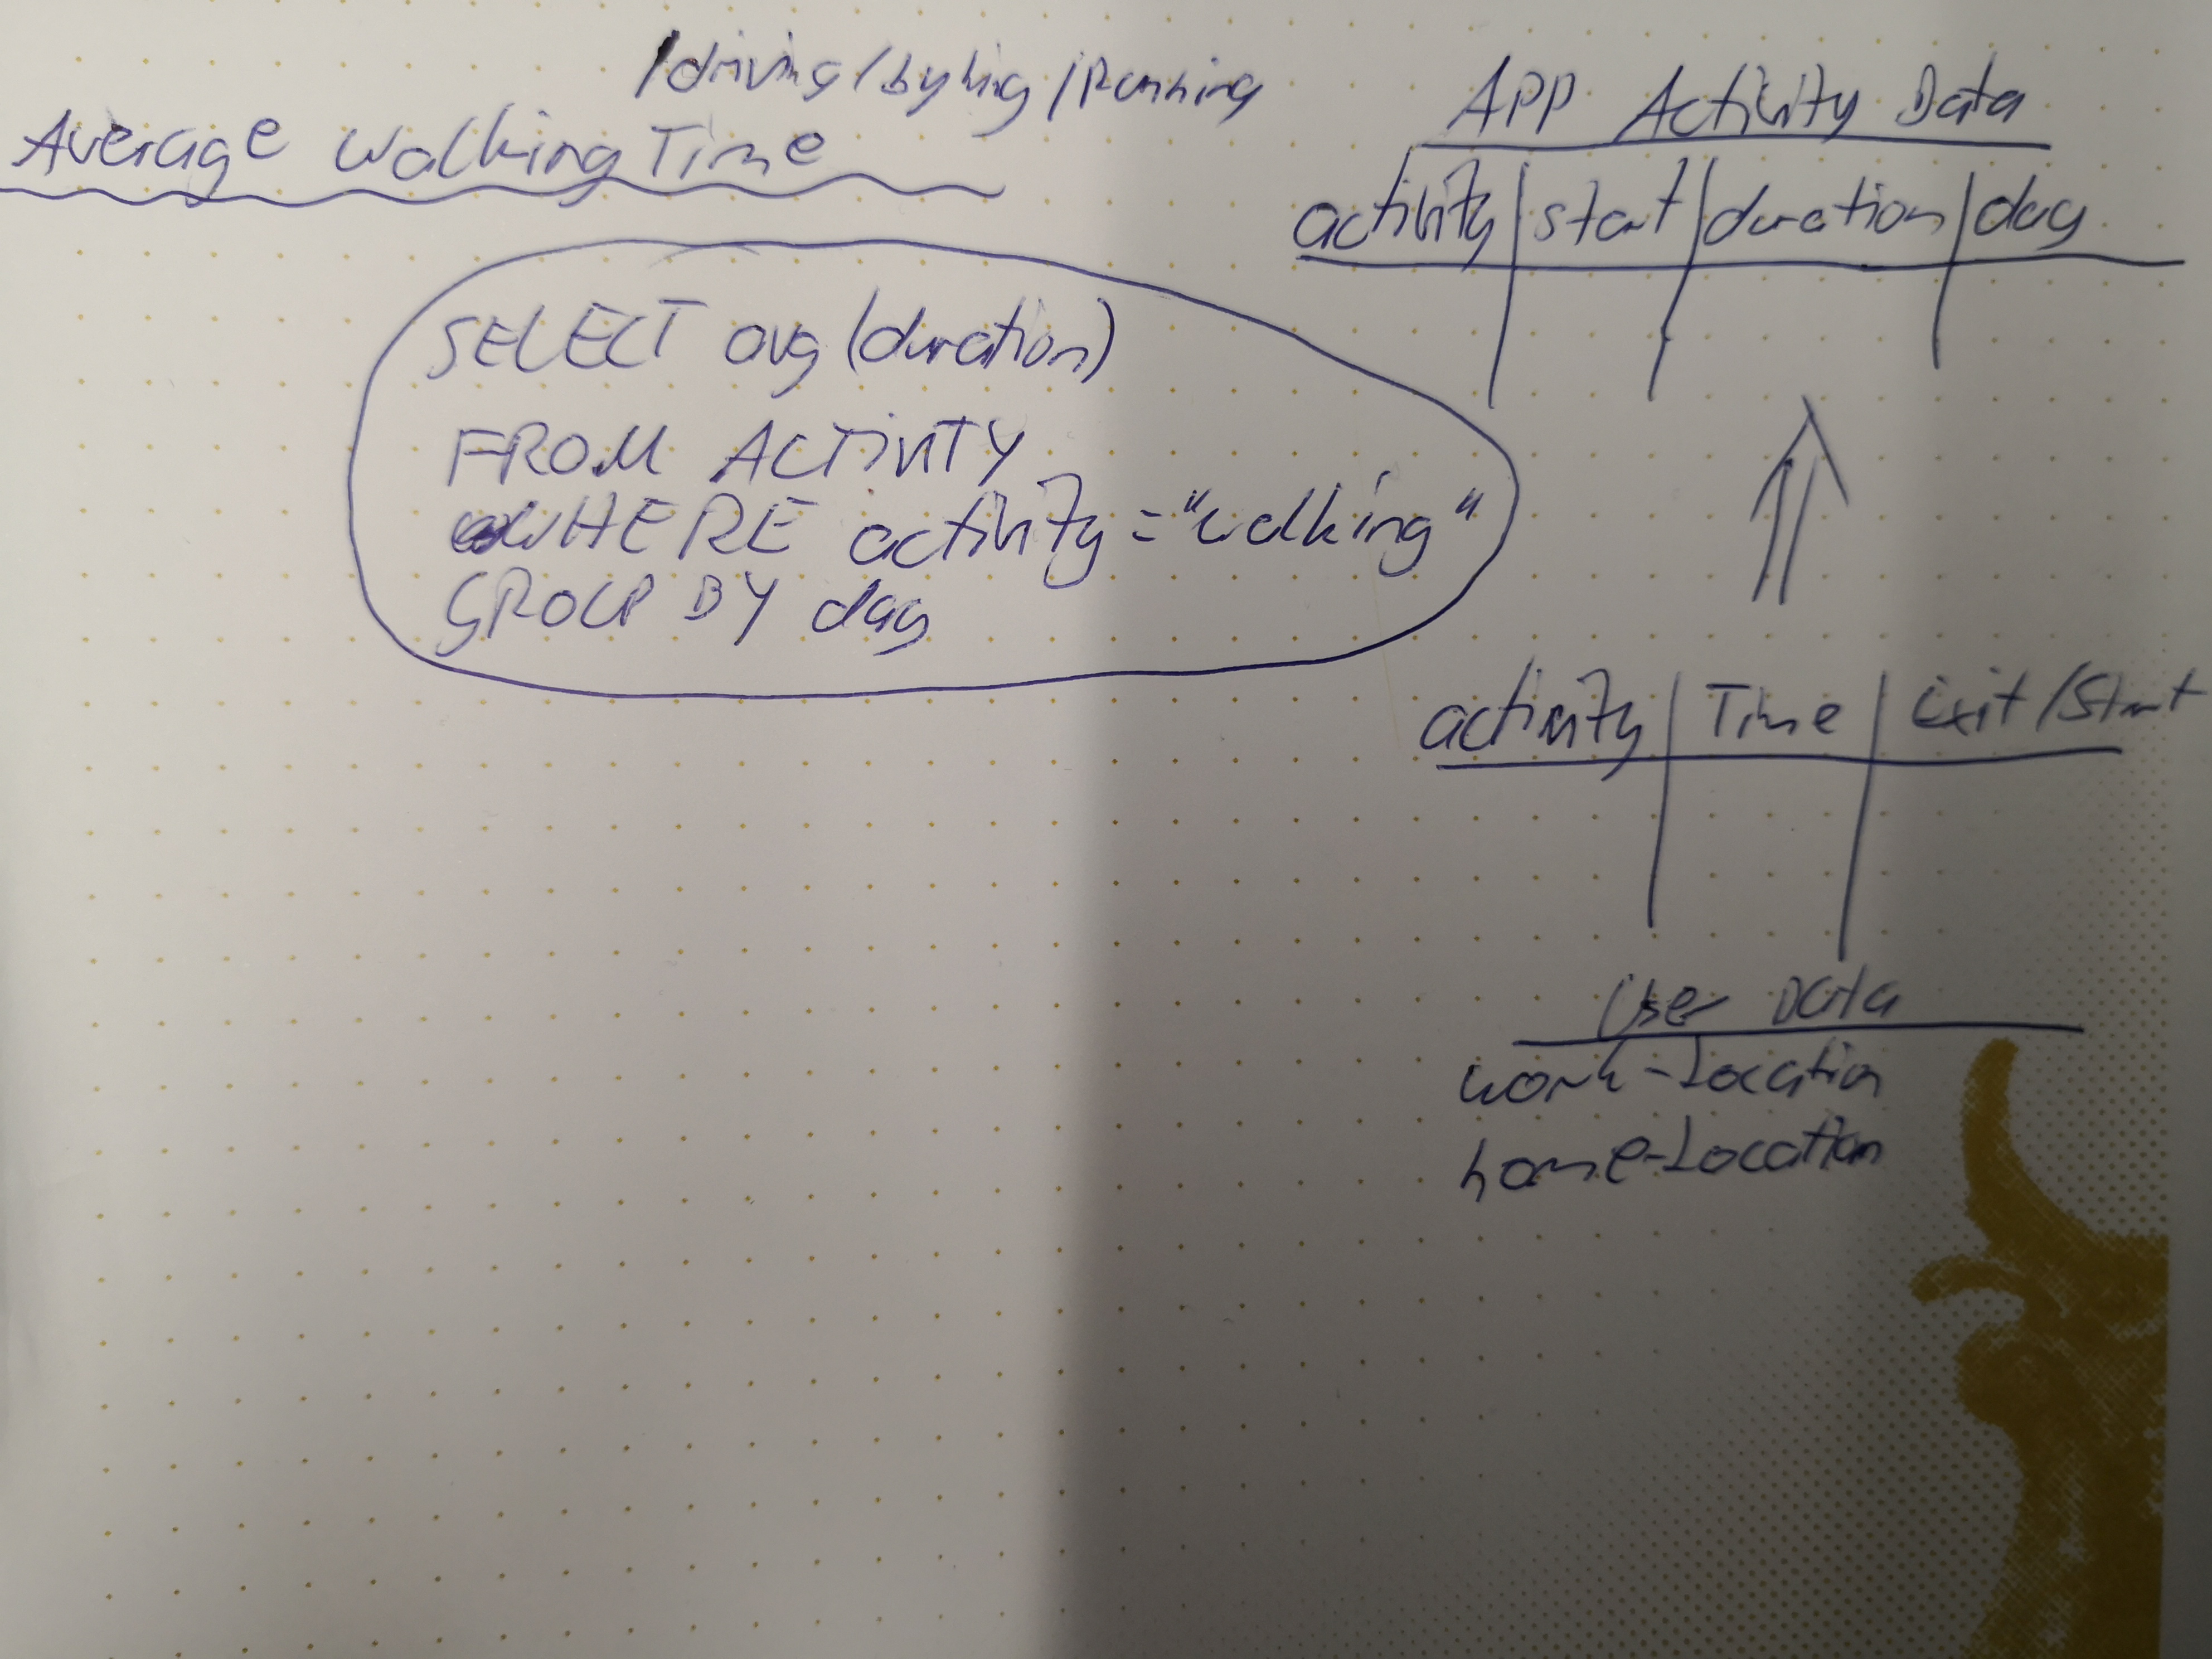 /driving/byking/Running
Average walking Time
SELECT avg (duration)
FROM ACTiViTY
WHERE activity = "walking"
GROUP BY day
APP Activity Data
activity | start | duration | day
activity | Time | Exit/Start
User Data
work-Location
home-Location